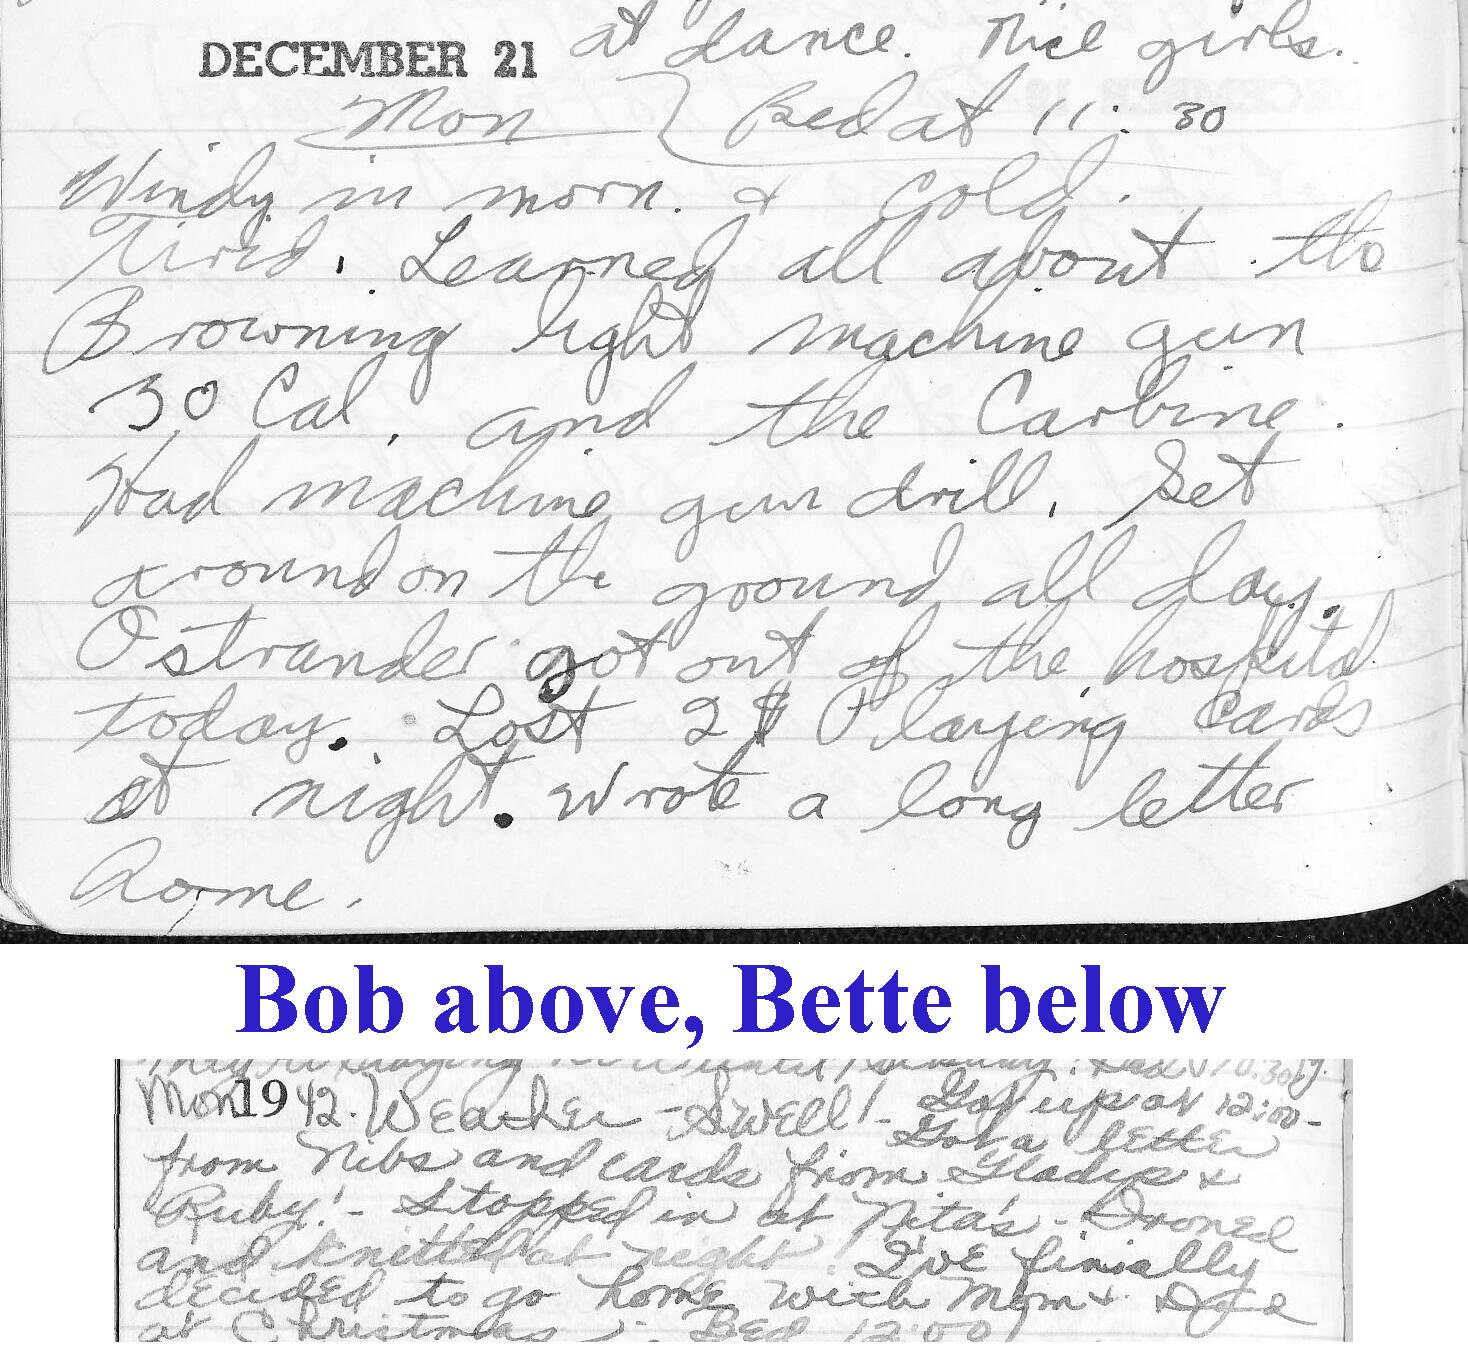 at dance. Nice girls.
DECEMBER 21
Mon Bed at 11:30
Windy in morn. & cold.
Tired. Learned all about the
Browning light machine gun
30 Cal. and the Carbine.
Had machine gun drill. Set
around on the ground all day.
Ostrander got out of the hospital
today. Lost 2$ Playing cards
at night. Wrote a long letter
home.
Bob above, Bette below
Mon 1942. Weather - Swell! - Got up at 12:00 -
Got a letter
from Nibs and cards from Gladys &
Ruby! - Stopped in at Nita's - Ironed
and knitted at night! I've finially
decided to go home with Mom & Dad
at Christmas. Bed 12:00!